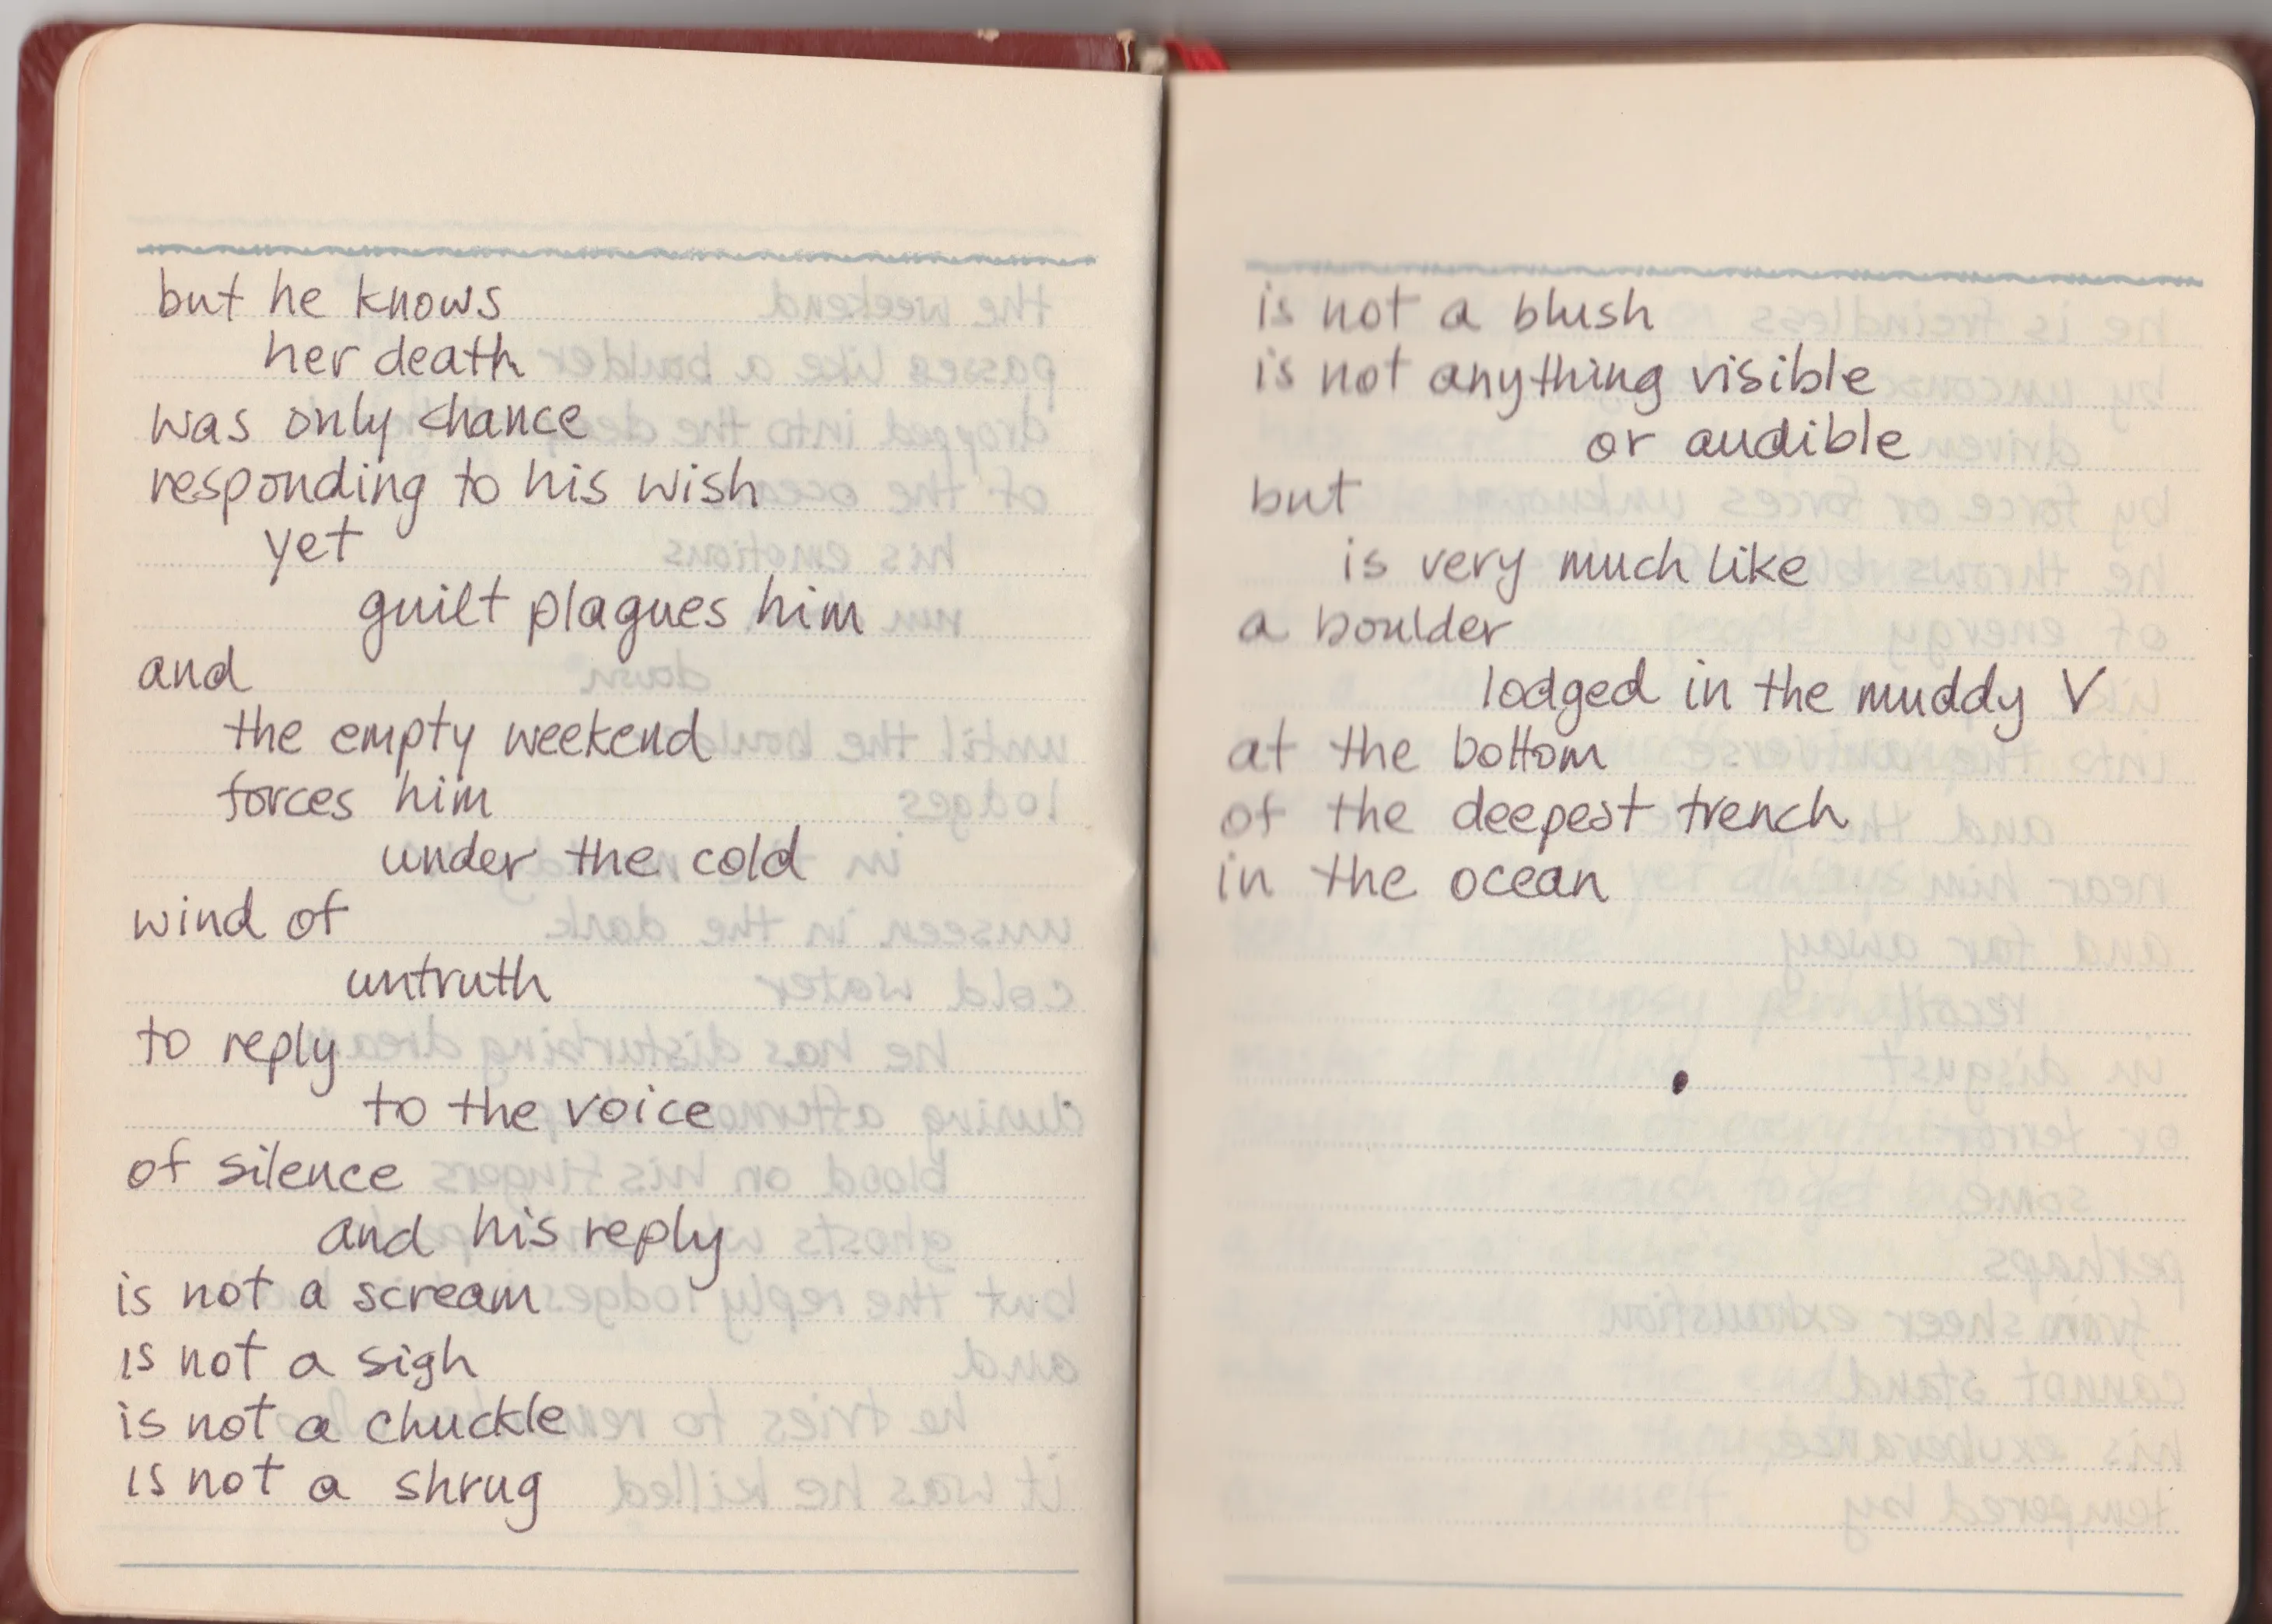 but he knows
her death
was only chance
responding to his wish
yet
guilt plagues him
and
the empty weekend
forces him
under the cold
wind of
untruth
to reply
to the voice
of silence
and his reply
is not a scream
is not a sigh
is not a chuckle
is not a shrug
is not a blush
is not anything visible
or audible
but
is very much like
a boulder
lodged in the muddy V
at the bottom
of the deepest trench
in the ocean